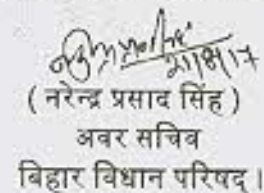 21/8/17
( नरेन्द्र प्रसाद सिंह )
अवर सचिव
बिहार विधान परिषद् ।